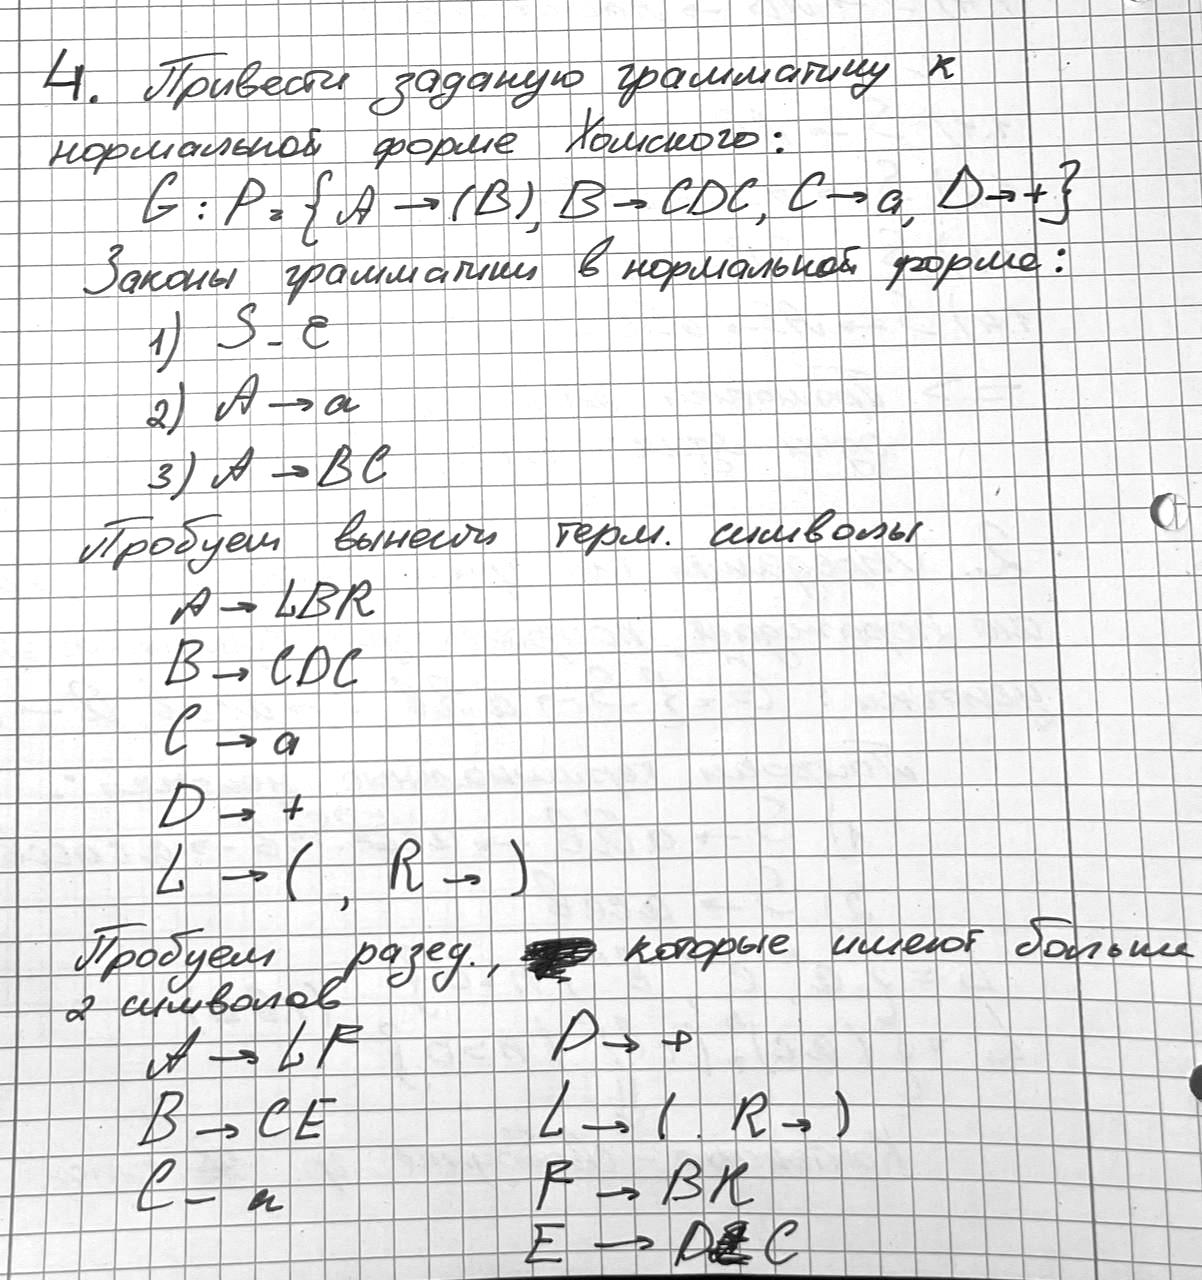 4. Привести заданую грамматику к
нормальной форме Хомского:
G: P = { A → (B), B → CDC, C → a, D → + }
Законы грамматики в нормальной форме:
1) S - ε
2) A → a
3) A → BC
Пробуем вынести терм. символы
A → LBR
B → CDC
C → a
D → +
L → ( , R → )
Пробуем разед., которые имеют больше
2 символов
A → LF D → +
B → CE L → ( . R → )
C - a F → BR
E → DC